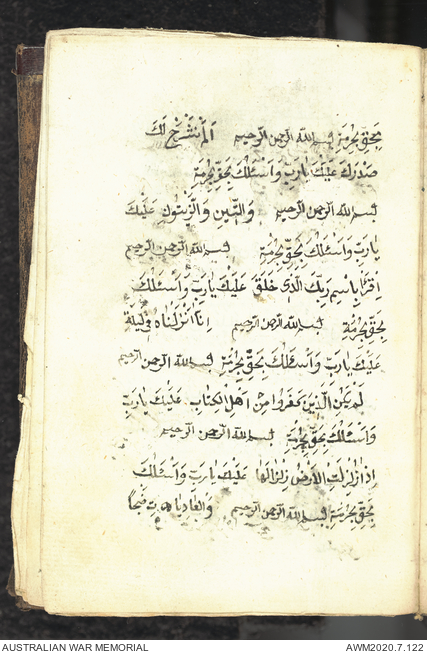 بِحَقِّ بِحُرْمَةِ بسم الله الرحمن الرحيم اَلَمْ نَشْرَحْ لَكَ
صَدْرَكَ عَلَيْكَ يٰارَبِّ وَاَسْئَلُكَ بِحَقِّ بِحُرْمَةِ
بسم الله الرحمن الرحيم وَالتّينِ وَالزَّيْتُونِ عَلَيْكَ
يٰارَبِّ وَاَسْئَلُكَ بِحَقِّ بِحُرْمَةِ بسم الله الرحمن الرحيم
اِقْرَأْ بِاسْمِ رَبِّكَ الَّذى خَلَقَ عَلَيْكَ يٰارَبِّ وَاَسْئَلُكَ
بِحَقِّ بِحُرْمَةِ بسم الله الرحمن الرحيم اِنّٰا اَنْزَلْنٰاهُ فى لَيْلَةِ
عَلَيْكَ يٰارَبِّ وَاَسْئَلُكَ بِحَقِّ بِحُرْمَةِ بسم الله الرحمن الرحيم
لَمْ يَكُنِ الَّذينَ كَفَرُوا مِنْ اَهْلِ الْكِتٰابِ عَلَيْكَ يٰارَبِّ
وَاَسْئَلُكَ بِحَقِّ بِحُرْمَةِ بسم الله الرحمن الرحيم
اِذٰا زُلْزِلَتِ الْاَرْضُ زِلْزٰالَهٰا عَلَيْكَ يٰارَبِّ وَاَسْئَلُكَ
بِحَقِّ بِحُرْمَةِ بسم الله الرحمن الرحيم وَالْعٰادِيٰاتِ ضَبْحًا
AUSTRALIAN WAR MEMORIAL AWM2020.7.122